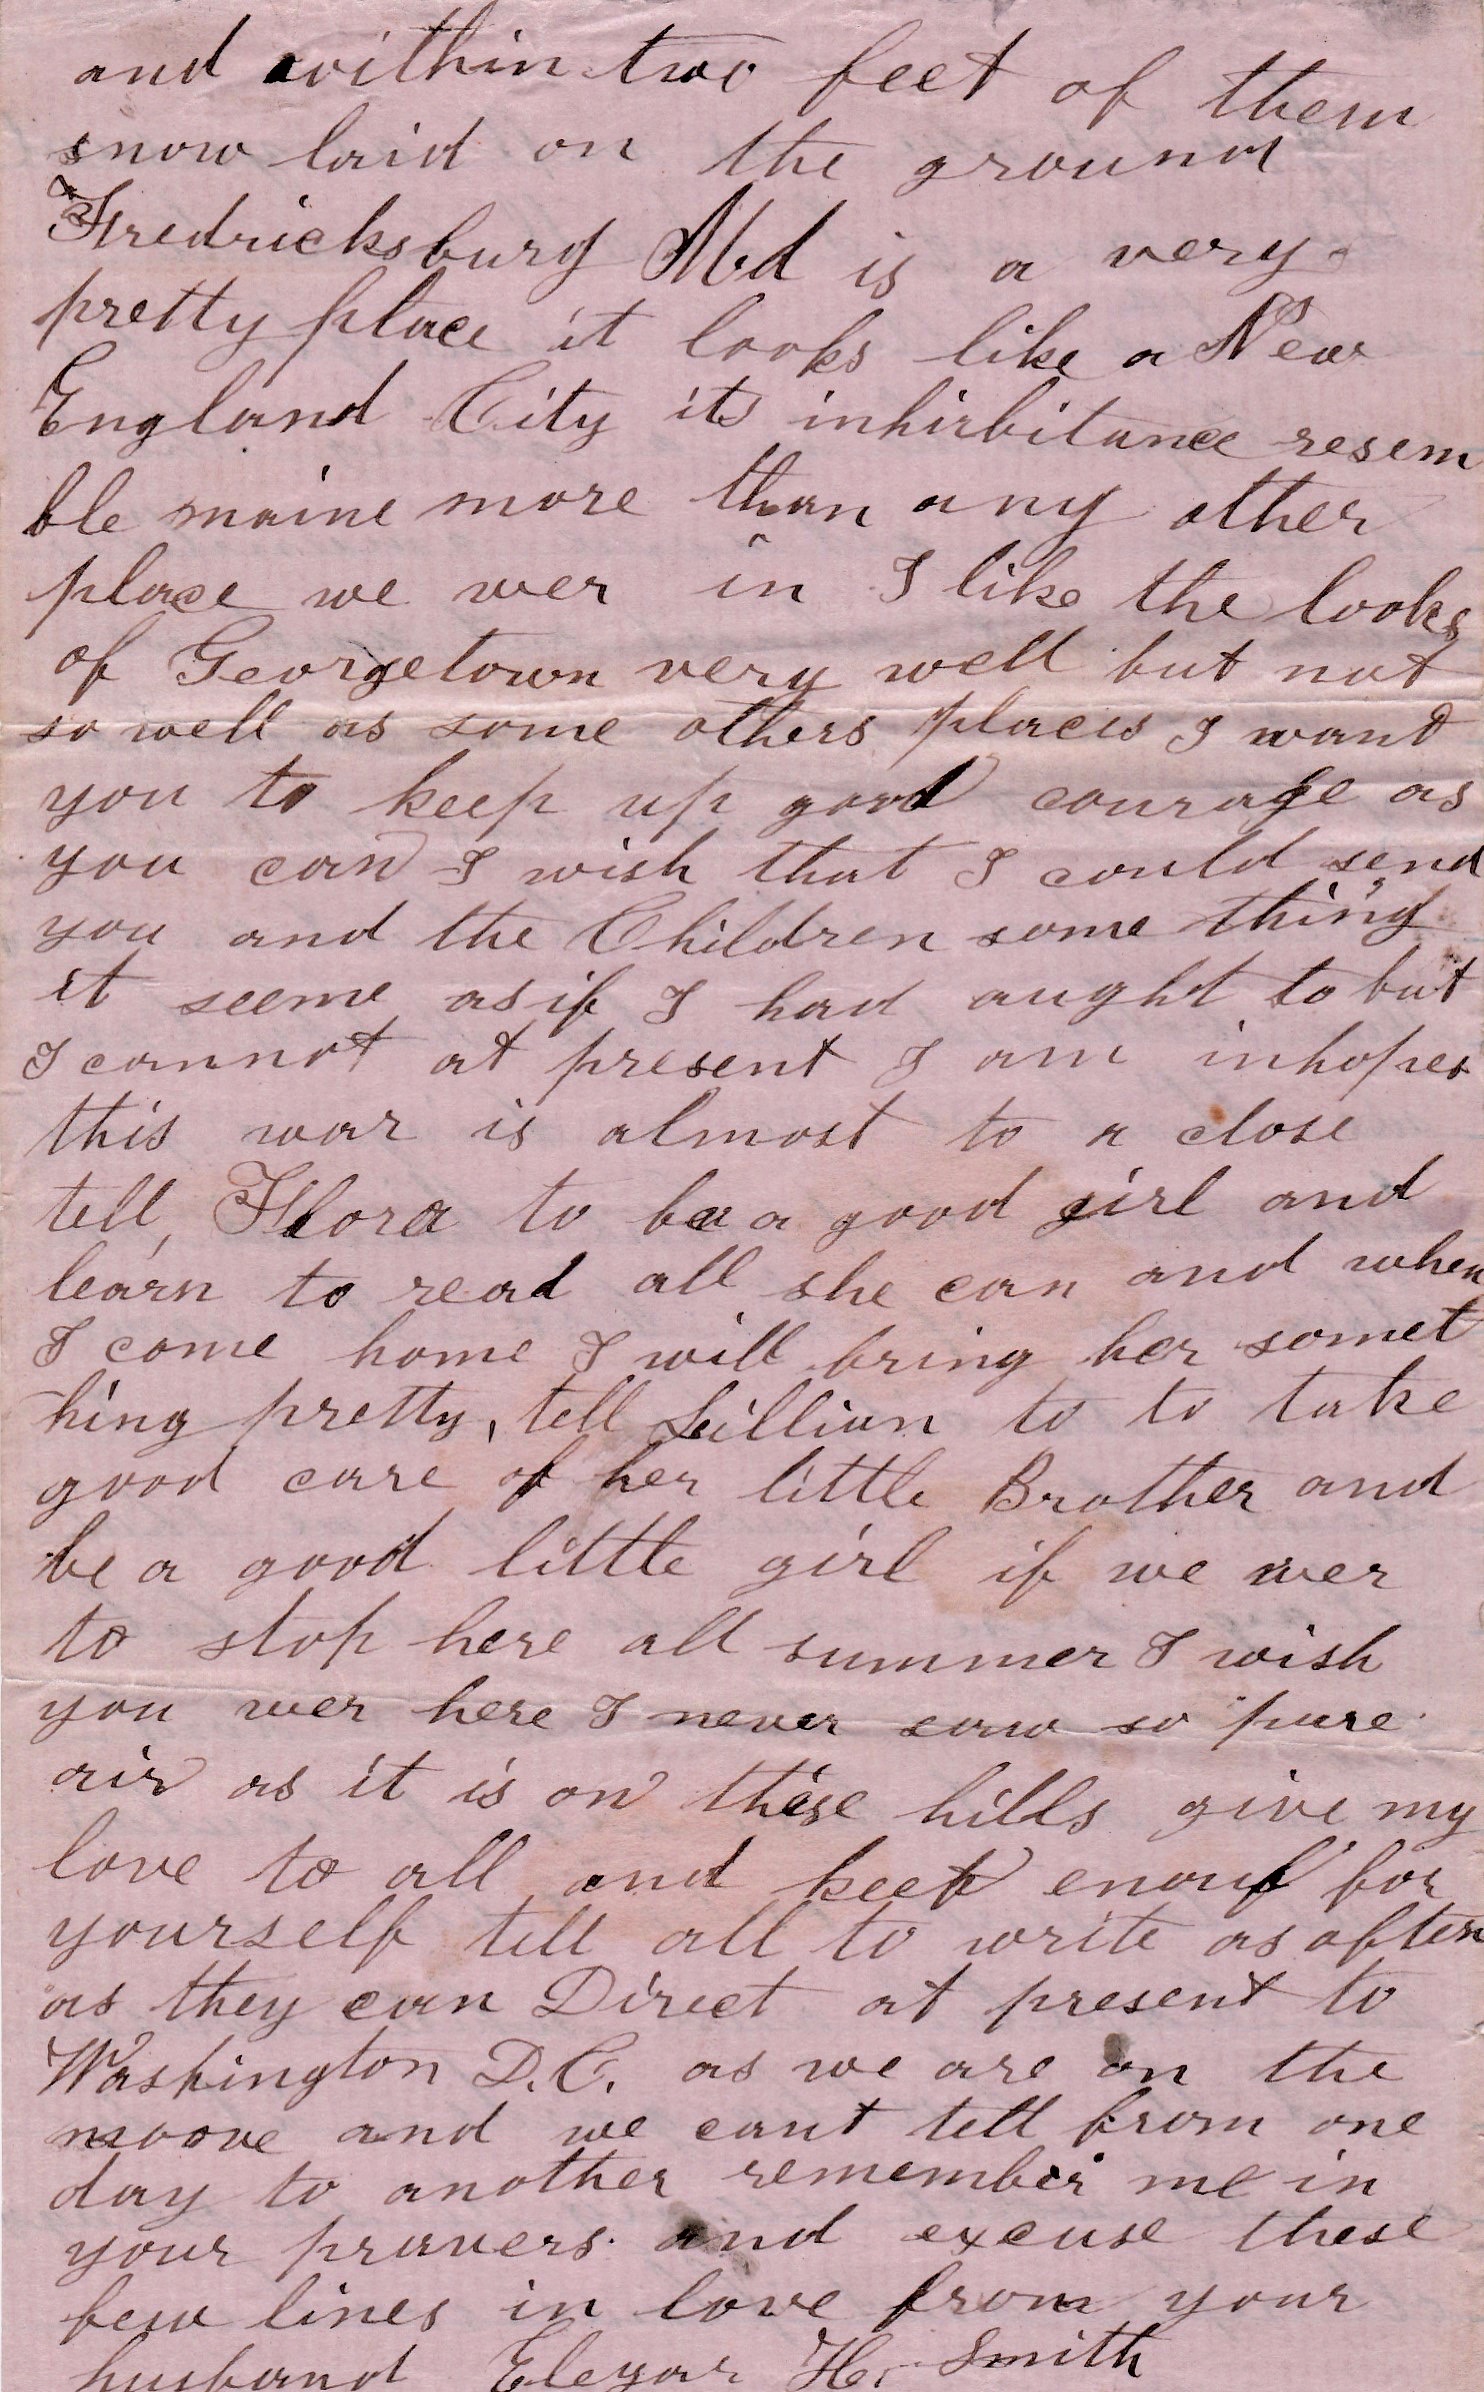 and within two feet of them
snow laid on the ground
Fredricksburg Md is a very
pretty place it looks like a New
England City its inhirbitance resem
ble maine more than any other
place we wer in I like the looks
of Georgetown very well but not
so well as some others places I want
you to keep up good courage as
you can I wish that I could send
you and the Children some thing
it seems as if I had aught to but
I cannot at present I am inhopes
this war is almost to a close
tell, Flora to be a good girl and
learn to read all she can and when
I come home I will bring her somet
hing pretty, tell Lillian to to take
good care of her little Brother and
be a good little girl if we wer
to stop here all summer I wish
you wer here I never saw so pure
air as it is on these hills give my
love to all and keep enouf for
yourself tell all to write as often
as they can Direct at present to
Washington D.C. as we are on the
moove and we cant tell from one
day to another remember me in
your pravers and excuse these
few lines in love from your
husband Eleyar H. Smith